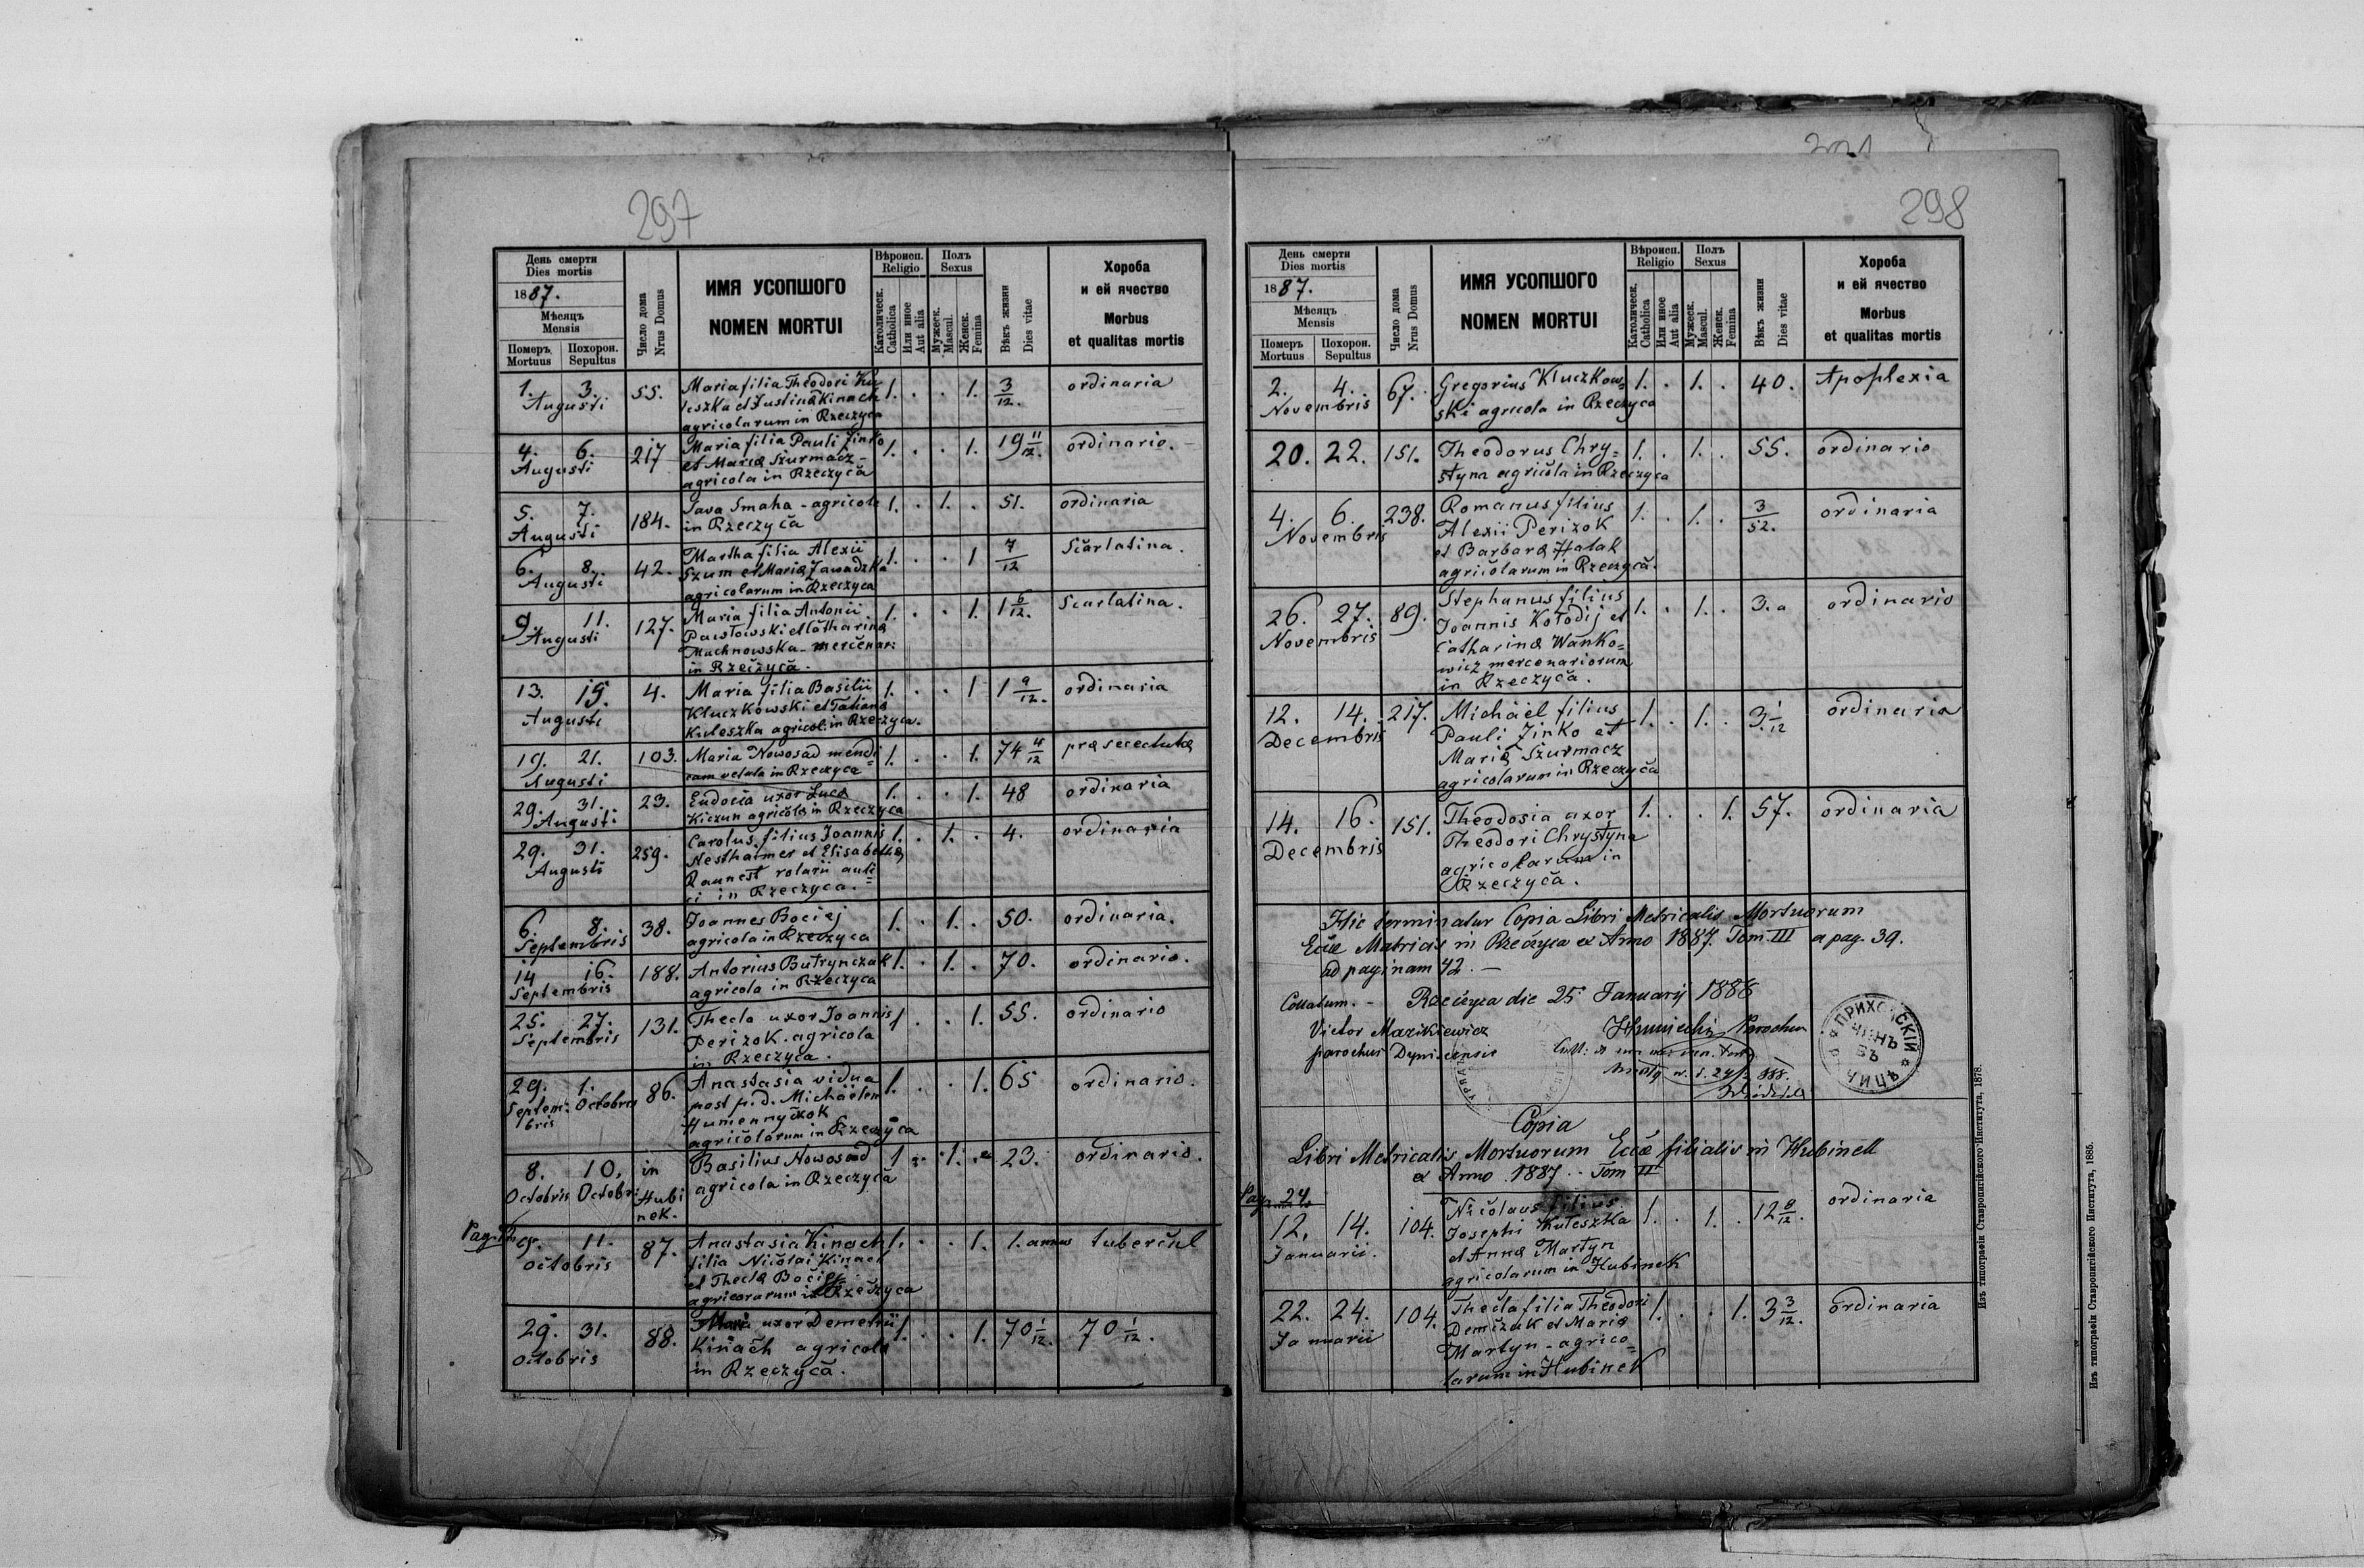 297
День смерти
Dies mortis
1887.
Мѣсяцъ
Mensis
Померъ Похорон.
Mortuus Sepultus
Число дома
Nrus Domus
ИМЯ УСОПШОГО
NOMEN MORTUI
Вѣроисп.
Religio
Католическ.
Catholica
Или иное
Aut alia
Полъ
Sexus
Мужеск.
Mascul.
Женск.
Femina
Вѣкъ жизни
Dies vitae
Хороба
и ей ячество
Morbus
et qualitas mortis
1. 3. 55. Maria filia Theodori Ku 1. . . 1. 3/12. ordinaria
Augusti leszka et Justina Kinach
agricolarum in Rzeczyca
4. 6. 217 Maria filia Pauli Zinko 1. . . 1. 19 11/12. ordinario.
Augusti et Mariæ Szurmacz -
agricola in Rzeczyca
5. 7. 184. Sava Smaha - agricola 1. . 1. . 51. ordinaria
Augusti in Rzeczyca
6. 8. 42. Martha filia Alexii 1. . . 1 7/12 Scarlatina.
Augusti Szum et Mariæ Zawadzka
agricolarum in Rzeczyca
9. 11. 127. Maria filia Antonii 1. . . 1. 1 6/12. Scarlatina.
Augusti Pawłowski et Catharinæ
Muchnowska - mercenar:
in Rzeczyca.
13. 15. 4. Maria filia Basilii 1. . . 1 1 9/12. ordinaria
Augusti Kluczkowski et Tatianæ
Kuleszka agricol. in Rzeczyca.
19. 21. 103. Maria Nowosad mendi 1. . . 1. 74 4/12
Augusti cam vetula in Rzeczyca
29. 31. 23. Eudocia uxor Lucæ 1. . . 1. 48 ordinaria
Augusti Kiczun agricola in Rzeczyca
29. 31. 259. Carolus filius Joannis 1. . 1. . 4. ordinaria
Augusti Nesthaimer et Elisabethæ
in Rzeczyca.
6. 8. 38. Joannes Bociej 1. . 1. . 50. ordinaria.
Septembris agricola in Rzeczyca
14 16. 188. Antonius Butrynczak 1. . 1. . 70. ordinario.
Septembris agricola in Rzeczyca
25. 27. 131. Thecla uxor Joannis 1 . . 1. 55. ordinario
Septembris Perizok. agricola
in Rzeczyca.
29. 1. 86. Anastasia vidua 1. . . 1. 65 ordinario.
Septem: Octobris post p. d. Michäelem
bris Humennyczok
agricolarum in Rzeczyca
8. 10. in Basilius Nowosad 1 . 1. . 23. ordinario.
Octobris Octobri Hubi agricola in Rzeczyca
nek.
9. 11. 87. Anastasia Kinach 1. . . 1. 1. annus tubercul
Octobris filia Nicolai Kinach
et Theclæ Bociej
in Rzeczyca
29. 31. 88. Maria uxor Demetrii 1. . . 1. 70 1/12. 70 1/12.
Octobris Kinach agricola
in Rzeczyca.
298
День смерти
Dies mortis
1887.
Мѣсяцъ
Mensis
Померъ Похорон.
Mortuus Sepultus
Число дома
Nrus Domus
ИМЯ УСОПШОГО
NOMEN MORTUI
Вѣроисп.
Religio
Католическ.
Catholica
Или иное
Aut alia
Полъ
Sexus
Мужеск.
Mascul.
Женск.
Femina
Вѣкъ жизни
Dies vitae
Хороба
и ей ячество
Morbus
et qualitas mortis
2. 4. 67. Gregorius Kluczkow= 1. . 1. . 40. Apoplexia
Novembris ski agricola in Rzeczyca
20. 22. 151. Theodorus Chry= 1. . 1. . 55. ordinario
styna agricola in Rzeczyca
4. 6. 238. Romanus filius 1. . 1. . 3/52. ordinaria
Novembris Alexii Perizok
et Barbaræ Hatak
agricolarum in Rzeczyca.
26. 27. 89. Stephanus filius 1. . 1. . 3. a ordinario
Novembris Joannis Kołodij et
Catharinæ Wanko=
wicz mercenariorum
in Rzeczyca.
12. 14. 217. Michäel filius 1. . 1. . 3 1/12 ordinaria
Decembris Pauli Zinko et
Mariæ Szurmacz
agricolarum in Rzeczyca
14. 16. 151. Theodosia uxor 1. . . 1. 57. ordinaria
Decembris Theodori Chrystyna
agricolarum in
Rzeczyca.
Hic terminatur Copia Libri Metricalis Mortuorum
Eccæ Matricis in Rzeczyca ex Anno 1887. Tom. III a pag. 39.
ad paginam 42. -
Collatum. - Rzeczyca die 25 Januarij 1888
Victor Mazikiewicz Parochus
parochus
ПРИХОДСКІЙ
Copia
Libri Metricalis Mortuorum Eccæ filialis in Hubinek
ex Anno 1887. Tom III
Pag. 24
12. 14. 104. Nicolaus filius 1. . 1. . 12 8/12. ordinaria
Januarii. Josephi Kuleszka
et Annæ Martyn
agricolarum in Hubinek
22. 24. 104. Thecla filia Theodori 1. . . 1. 3 3/12. ordinaria
Januarii Demczuk et Mariæ
Martyn - agrico=
larum in Hubinek
Изъ типографіи Ставропигійского Института, 1878.
Изъ типографіи Ставропигійского Института, 1885.